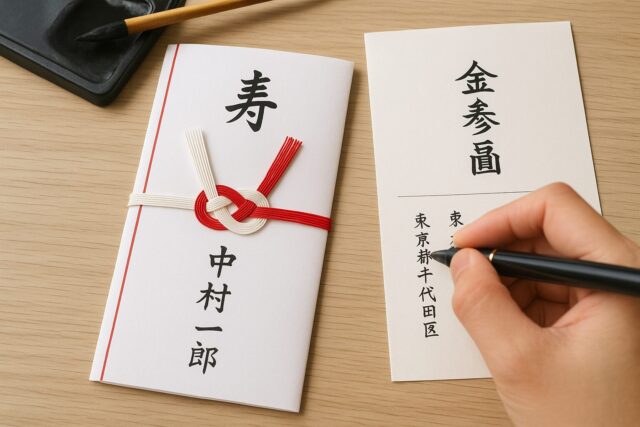 寿
中村一郎
金参圓
東
東京都千代田区